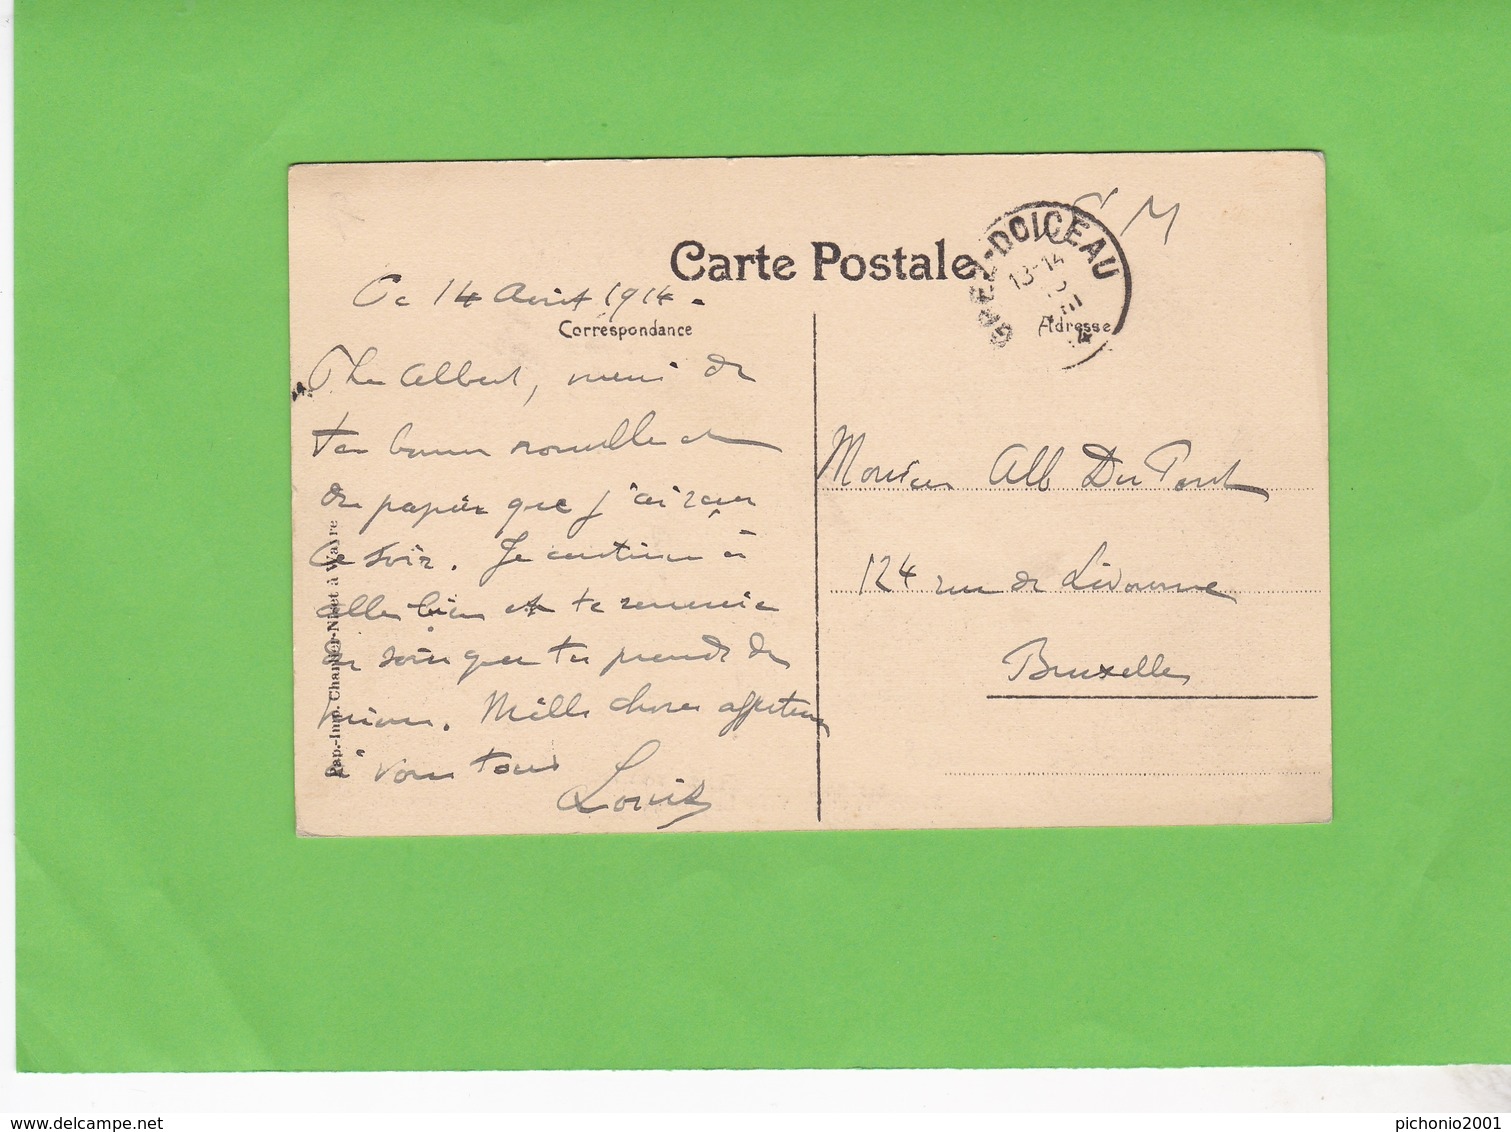 Carte Postale
GREZ-DOICEAU
13-14
VIII
M
Ce 14 Août 1914.
Correspondance
Adresse
Cher Albert, merci de
ta bonne nouvelle et
du papier que j'ai reçu
ce soir. Je continue à
aller bien et te remercie
du soin que tu prends du
mien. Mille choses affectueuses
à vous tous
Louis
Monsieur Alb Du Pont
124 rue de Livourne
Bruxelles
Pap.-Imp. Charlier-Niset à Wavre
www.delcampe.net
pichonio2001